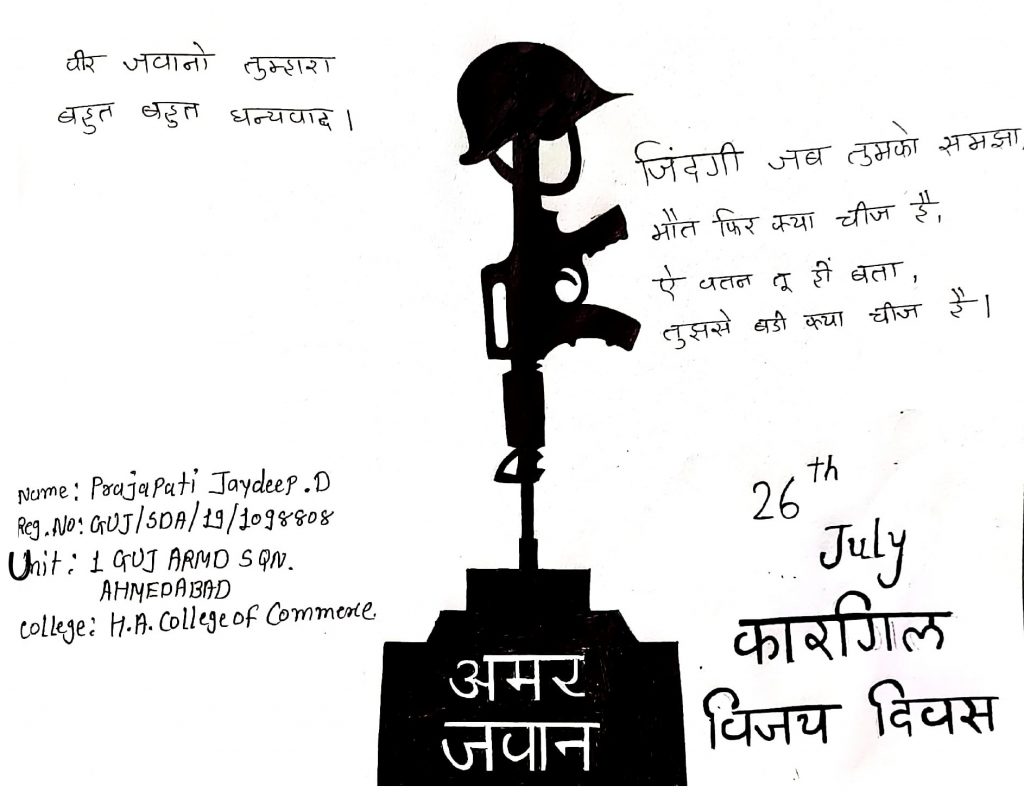 वीर जवानो तुम्हारा
बहुत बहुत धन्यवाद।
जिंदगी जब तुमको समझा,
मौत फिर क्या चीज है,
ऐ वतन तू हीं बता,
तुझसे बडी क्या चीज है।
Name: Prajapati Jaydeep.D
Reg.No: GUJ/SDA/19/1098808
Unit: 1 GUJ ARMD SQN.
AHMEDABAD
college: H.A. College of Commerce.
26th
July
कारगिल
विजय दिवस
अमर
जवान